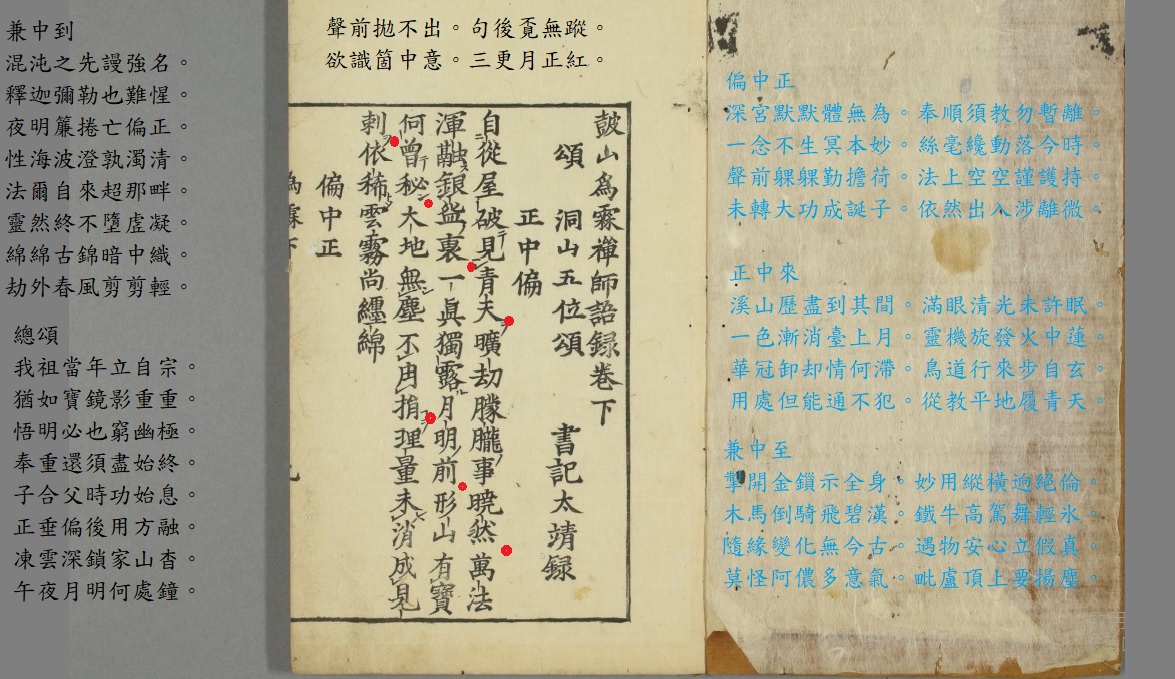 聲前拋不出。句後覔無蹤。
欲識箇中意。三更月正紅。
皷山為霖禪師語録卷下
頌 洞山五位頌 書記太靖録
正中偏
自從屋破見青天曠劫朦朧事曉然萬法
渾融銀盌裏一真獨露月明前形山有寶
何曾秘大地無塵不用揩理量未消成見
刺依稀雲霧尚纏綿
偏中正
偏中正
深宮默默體無為。奉順須教勿暫離。
一念不生冥本妙。絲毫纔動落今時。
聲前躶躶勤擔荷。法上空空謹護持。
未轉大功成誕子。依然出入涉離微。
正中來
溪山歷盡到其間。滿眼清光未許眠。
一色漸消臺上月。靈機旋發火中蓮。
華冠卸却情何滯。鳥道行來步自玄。
用處但能通不犯。從教平地履青天。
兼中至
擊開金鎖示全身。妙用縱橫逈絕倫。
木馬倒騎飛碧漢。鐵牛高駕舞輕氷。
隨緣變化無今古。遇物安心立假真。
莫怪阿儂多意氣。毗盧頂上要揚塵。
兼中到
混沌之先謾強名。
釋迦彌勒也難惺。
夜明簾捲亡偏正。
性海波澄孰濁清。
法爾自來超那畔。
靈然終不墮虛凝。
綿綿古錦暗中織。
劫外春風剪剪輕。
總頌
我祖當年立自宗。
猶如寶鏡影重重。
悟明必也窮幽極。
奉重還須盡始終。
子合父時功始息。
正垂偏後用方融。
凍雲深鎖家山杳。
午夜月明何處鐘。